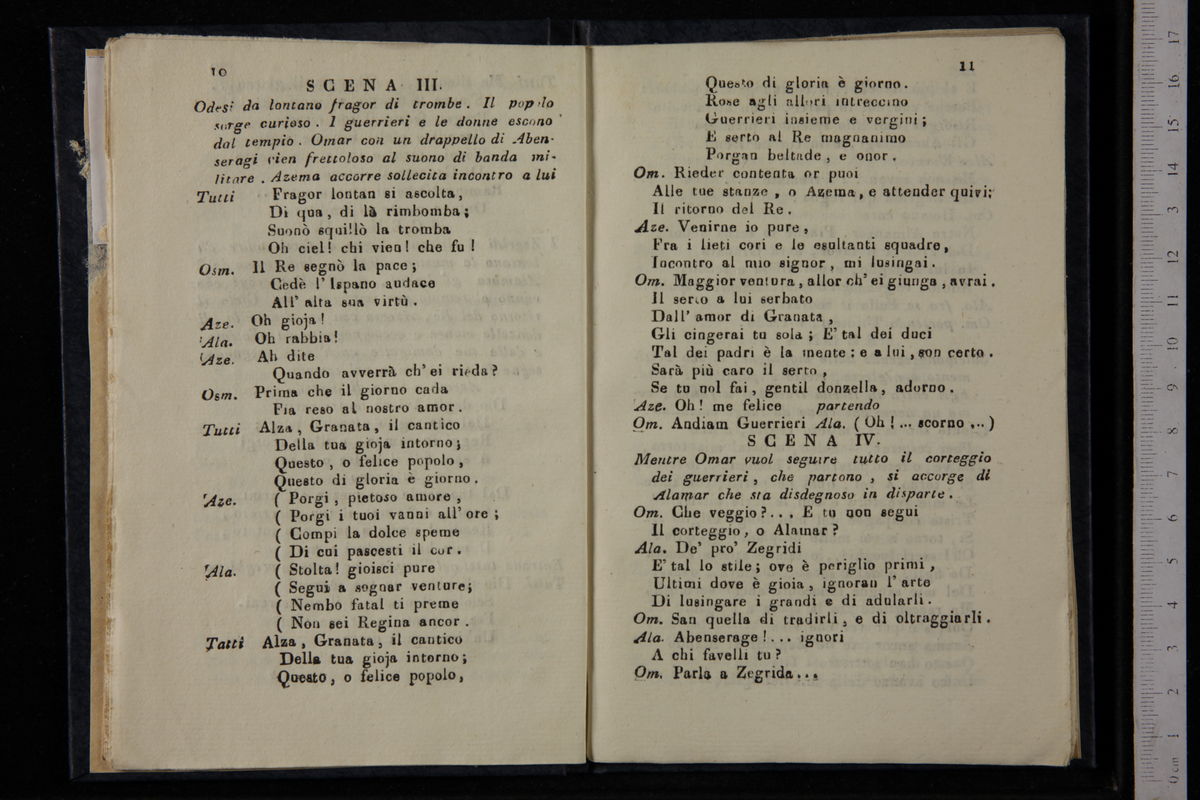 10
SCENA III.
Odesi da lontano fragor di trombe. Il popolo
sorge curioso. I guerrieri e le donne escono
dal tempio. Omar con un drappello di Aben-
seragi vien frettoloso al suono di banda mi-
litare. Azema accorre sollecita incontro a lui
Tutti Fragor lontan si ascolta,
Di qua, di là rimbomba;
Suonò squillò la tromba
Oh ciel! chi vien! che fu!
Osm. Il Re segnò la pace;
Cedè l'Ispano audace
All' alta sua virtù.
Aze. Oh gioja!
Ala. Oh rabbia!
Aze. Ah dite
Quando avverrà ch' ei rieda?
Osm. Prima che il giorno cada
Fia reso al nostro amor.
Tutti Alza, Granata, il cantico
Della tua gioja intorno;
Questo, o felice popolo,
Questo di gloria è giorno.
Aze. ( Porgi, pietoso amore,
( Porgi i tuoi vanni all' ore;
( Compi la dolce speme
( Di cui pascesti il cor.
Ala. ( Stolta! gioisci pure
( Segui a sognar venture;
( Nembo fatal ti preme
( Non sei Regina ancor.
Tatti Alza, Granata, il cantico
Della tua gioja intorno;
Questo, o felice popolo,
11
Questo di gloria è giorno.
Rose agli allori intreccino
Guerrieri insieme e vergini;
E serto al Re magnanimo
Porgan beltade, e onor.
Om. Rieder contenta or puoi
Alle tue stanze, o Azema, e attender quivi;
Il ritorno del Re.
Aze. Venirne io pure,
Fra i lieti cori e le esultanti squadre,
Incontro al mio signor, mi lusingai.
Om. Maggior ventura, allor ch' ei giunga, avrai.
Il serto a lui serbato
Dall' amor di Granata,
Gli cingerai tu sola; E' tal dei duci
Tal dei padri è la mente: e a lui, son certo.
Sarà più caro il serto,
Se tu nol fai, gentil donzella, adorno.
Aze. Oh! me felice partendo
Om. Andiam Guerrieri Ala. ( Oh!... scorno ... )
SCENA IV.
Mentre Omar vuol seguire tutto il corteggio
dei guerrieri, che partono, si accorge di
Alamar che sta disdegnoso in disparte.
Om. Che veggio?... E tu non segui
Il corteggio, o Alamar?
Ala. De' pro' Zegridi
E' tal lo stile; ove è periglio primi,
Ultimi dove è gioia, ignoran l'arte
Di lusingare i grandi e di adularli.
Om. San quella di tradirli, e di oltraggiarli.
Ala. Abenserage!... ignori
A chi favelli tu?
Om. Parla a Zegrida...
0 cm 1 2 3 4 5 6 7 8 9 10 11 12 13 14 15 16 17